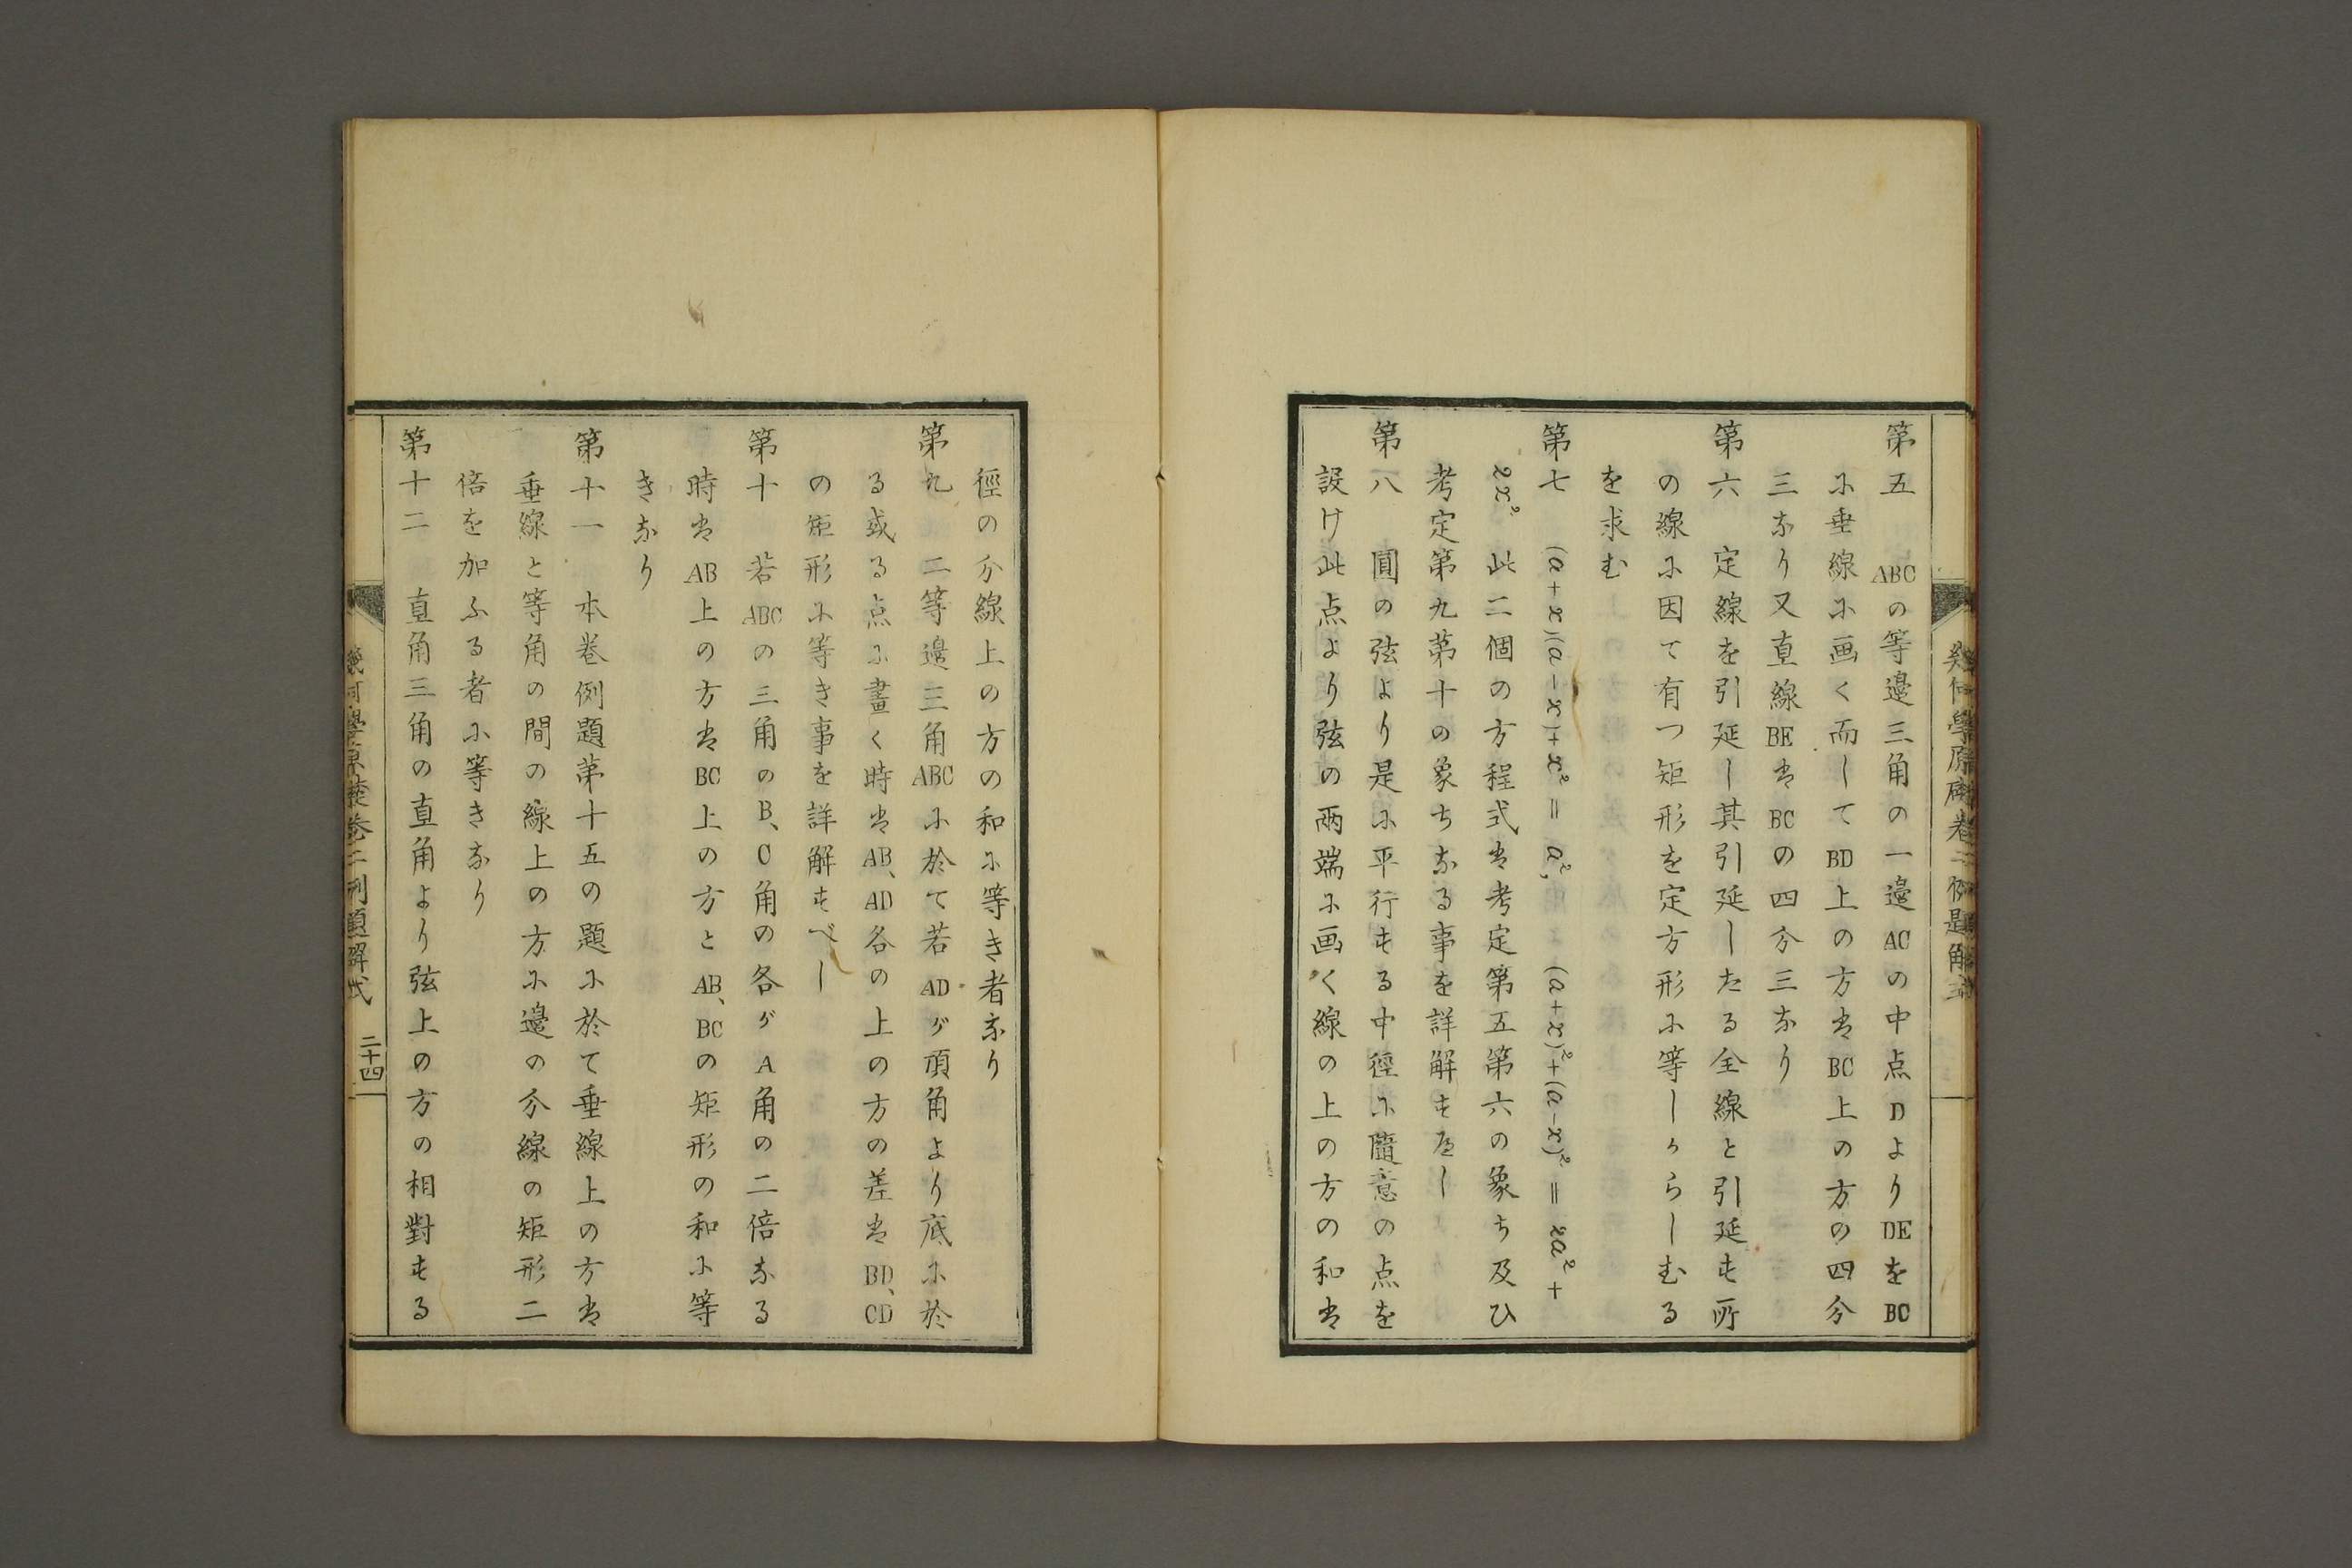 第五　ABCの等邊三角の一邊ACの中点DよりDEをBC
に垂線に画く而してBD上の方はBC上の方の四分
三なり又直線BEはBCの四分三なり
第六　定線を引延し其引延したる全線と引延す所
の線に因て有つ矩形を定方形に等しからしむる
を求む
第七　(a+x)(a−x)+x²=a², (a+x)²+(a−x)²=2a²+
2x²　此二個の方程式は考定第五第六の象ち及ひ
考定第九第十の象ちなる事を詳解すべし
第八　圓の弦より是に平行する中徑に隨意の点を
設け此点より弦の両端に画く線の上の方の和は
幾何學原礎卷二例題解式
徑の分線上の方の和に等き者なり
第九　二等邊三角ABCに於て若ADが頂角より底に於
る或る点に畫く時はAB、AD各の上の方の差はBD、CD
の矩形に等き事を詳解すべし
第十　若ABCの三角のB、C角の各がA角の二倍なる
時はAB上の方はBC上の方とAB、BCの矩形の和に等
きなり
第十一　本卷例題第十五の題に於て垂線上の方は
垂線と等角の間の線上の方に邊の分線の矩形二
倍を加ふる者に等きなり
第十二　直角三角の直角より弦上の方の相對する
幾何學原礎卷二例題解式　二十四